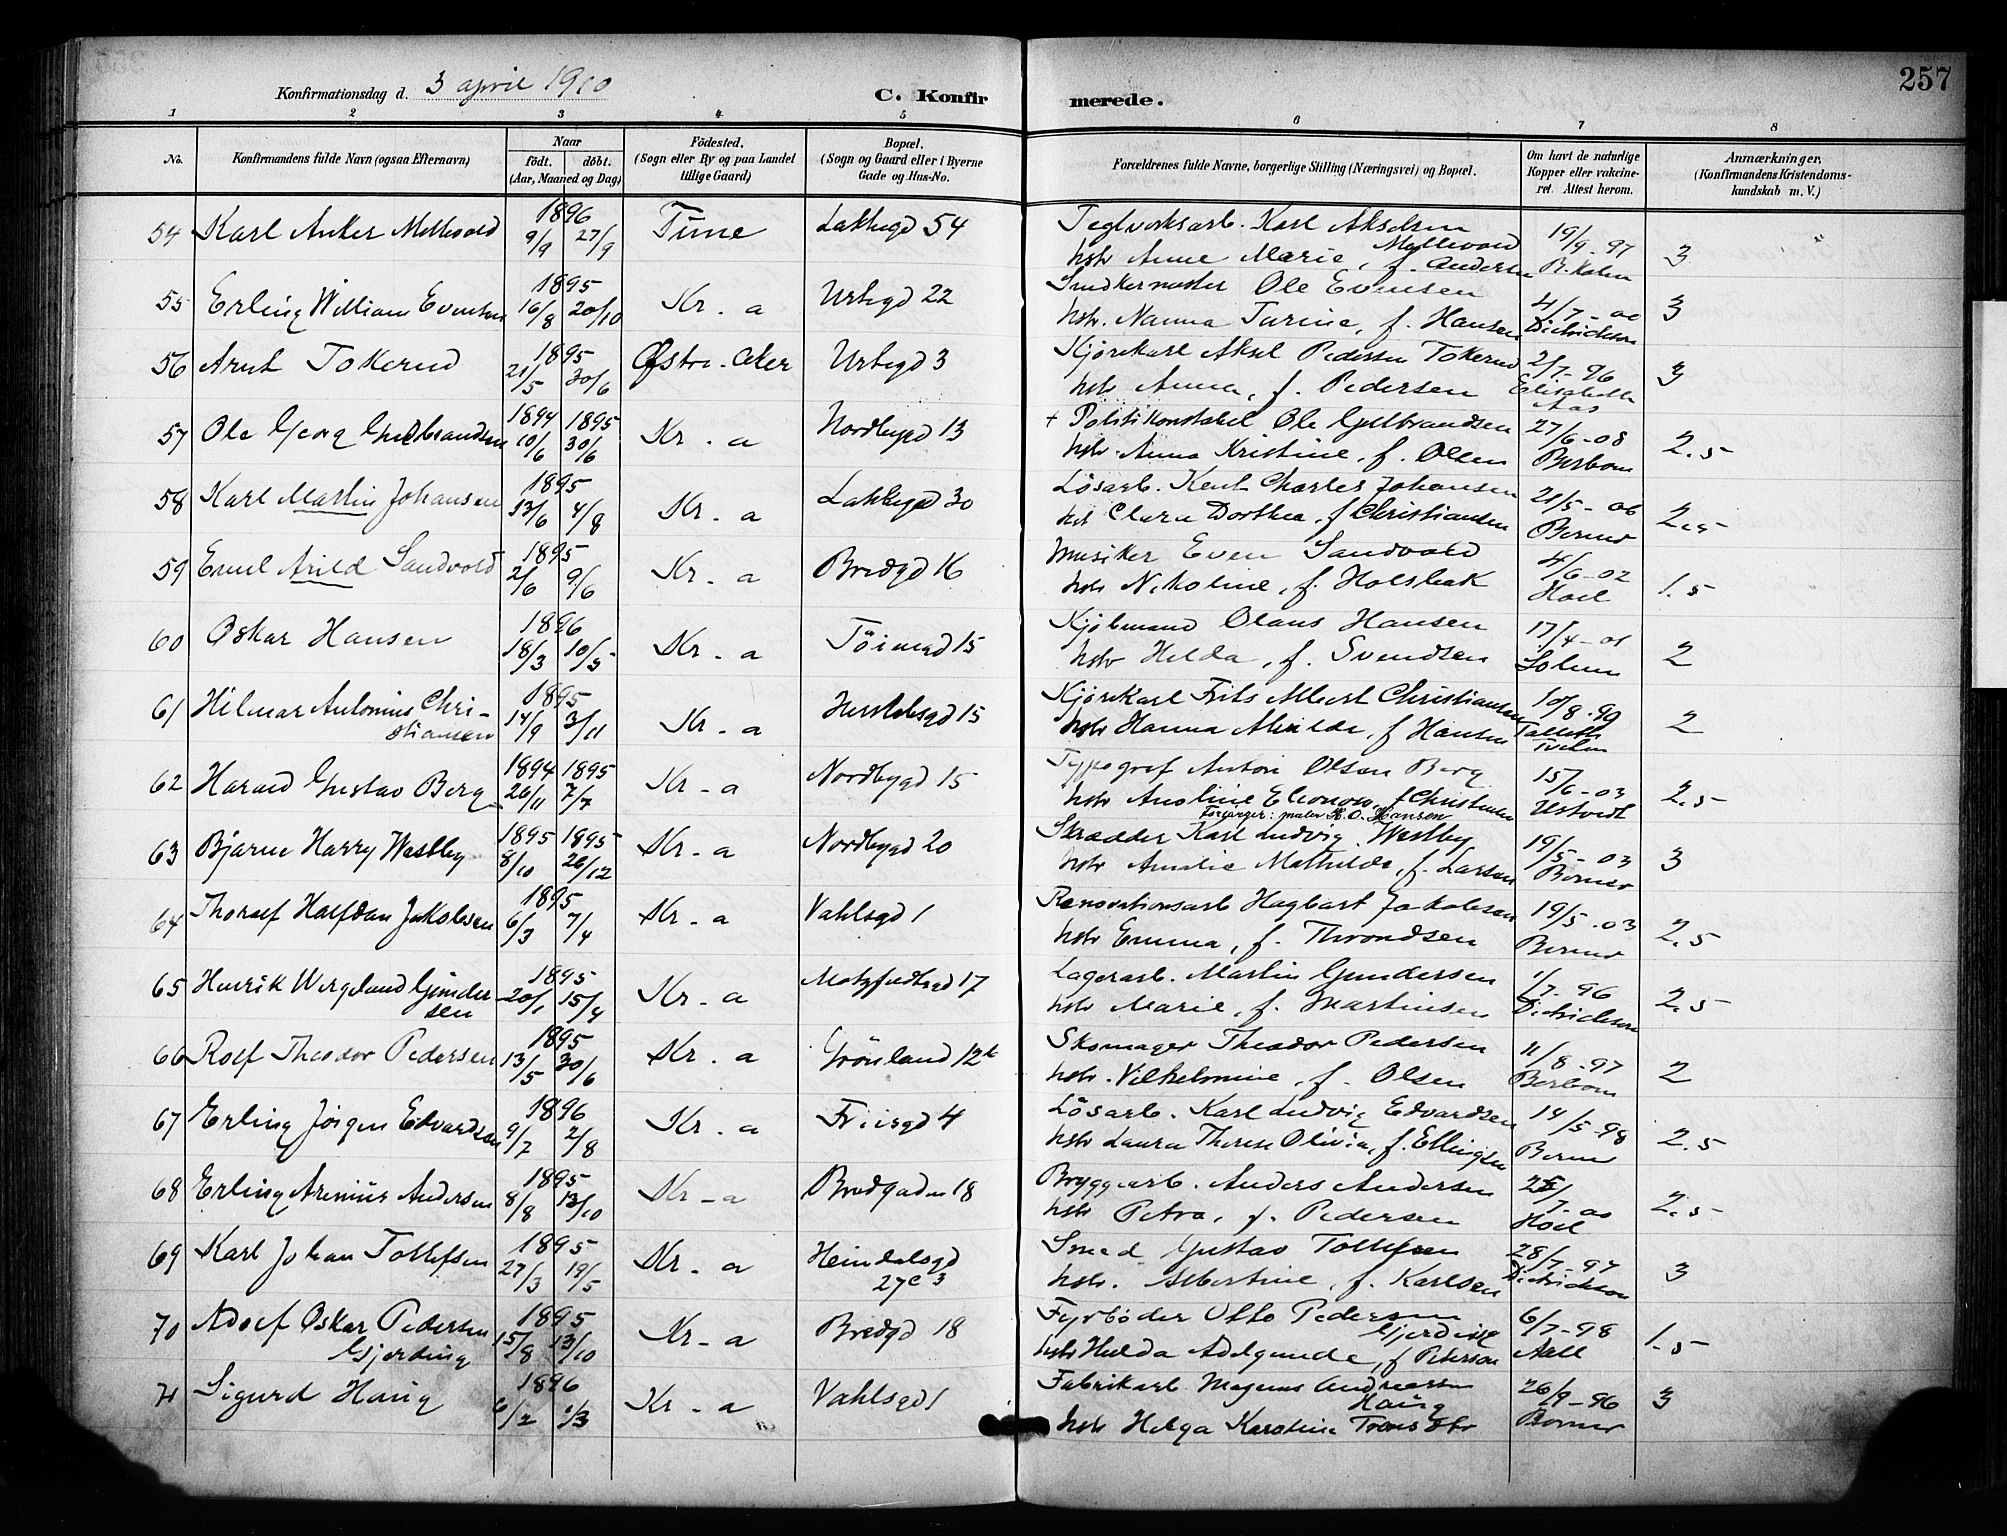 257
Konfirmationsdag d. 3 april 1910
C. Konfirmerede.
1 2 3 4 5 6 7 8
No. Konfirmandens fulde Navn (ogsaa Efternavn) Naar født. døbt. (Aar, Maaned og Dag) Fødested. (Sogn eller By og paa Landet tillige Gaard) Bopæl. (Sogn og Gaard eller i Byerne Gade og Hus-No. Forældrenes fulde Navne, borgerlige Stilling (Næringsvei) og Bopæl. Om havt de naturlige Kopper eller vaccineret. Attest herom. Anmærkninger, (Konfirmandens Kristendomskundskab m. V.)
54 Karl Anker Mellevold 1896 9/9 27/9 Tune Lakkegd 54 Teglverksarb. Karl Akselsen Mellevold 19/9-97
hstr Anne Marie, f. Andersen 3
55 Erling William Evensen 1895 16/8 20/10 Kr.a Urtegd 22 Snedkermester Ole Evensen 4/7-00
hstr. Nanna Turine, f. Hansen Dietrichson 3
56 Arnt Tokerud 1895 21/5 30/6 Østre Aker Urtegd 3 Kjørekarl Aksel Pedersen Tokerud 2/7-96
hstr Anna, f. Pedersen Elisabeth Aas 3
57 Ole Georg Guldbrandsen 1894 10/6 1895 30/6 Kr.a Nordbygd 13 + Politikonstabel Ole Gulbrandsen 27/6-08
hstr Anna Kristine, f. Olsen Berbom 2.5
58 Karl Martin Johansen 1895 13/6 4/8 Kr.a Lakkegd 30 Løsarb. Kent Charles Johansen 21/5-06
hst Clara Dorthea, f Christiansen Berner 2.5
59 Emil Arild Sandvold 1895 2/6 9/6 Kr.a Bredgd 16 Musiker Even Sandvold 4/6-02
hstr Nikoline, f. Holsbak Hoel 1.5
60 Oskar Hansen 1896 18/3 10/5 Kr.a Tøiengd 15 Kjøbmand Olaus Hansen 17/4-01
hstr Hilda, f. Svendsen Solem 2
61 Hilmar Antonius Christiansen 1895 14/9 3/11 Kr.a Herslebsgd 15 Kjørekarl Frits Albert Christiansen 10/8-99
hstr Hanna Alvilde, f Hansen 2
62 Harald Gustav Berg 1894 26/11 1895 7/7 Kr.a Nordbygd 15 Typograf Anton Olsen Berg 15/6-03
hstr Anoline Eleonore, f Christensen Ustvedt 2.5
Forsørger: maler H. O. Hansen
63 Bjarne Harry Westby 1895 8/10 1895 26/12 Kr.a Nordbygd 20 Skrædder Karl Ludvig Westby 19/5-03
hstr Amalie Mathilde, f. Larsen Berner 3
64 Thoralf Halfdan Jakobsen 1895 6/3 7/4 Kr.a Vahlsgd 1 Renovationsarb Hagbart Jakobsen 19/5.03
hstr Emma, f. Throndsen Berner 2.5
65 Henrik Wergeland Gundersen 1895 20/1 15/4 Kr.a Motzfeldtsgd 17 Lagerarb. Martin Gundersen 1/7-96
hstr Marie, f. Martinsen Dietrichson 2.5
66 Rolf Theodor Pedersen 1895 13/5 30/6 Kr.a Grønland 12b Skomager Theodor Pedersen 11/8-97
hstr. Vilhelmine, f. Olsen Berbom 2
67 Erling Jørgen Edvardsen 1896 9/7 2/8 Kr.a Friisgd 4 Løsarb. Karl Ludvig Edvardsen 14/5-98
hstr Laura Therese Olivia, f. Ellingsen Berner 2.5
68 Erling Arenius Andersen 1895 8/8 13/10 Kr-a Bredgaden 18 Bryggearb. Anders Andersen
hstr Petra, f. Pedersen Hoel 2.5
69 Karl Johan Tollefsen 1895 27/3 19/5 Kr.a Heimdalsgd 27c 3 Smed Gustav Tollefsen 28/7-97
hstr. Albertine, f. Karlsen Dietrichson 3
70 Adolf Oskar Pedersen Gjerding 1895 15/8 13/10 Kr-a Bredgd 18 Fyrbøder Otto Pedersen Gjerding 6/7-98
hstr Hulda Adelgunde, f Peterson Aall 1.5
71 Sigurd Haug 1896 6/2 1/3 Kr.a Vahlsgd 1 Fabrikarb. Magnus Andreassen Haug 26/9-96
hstr Helga Karoline Berner 3